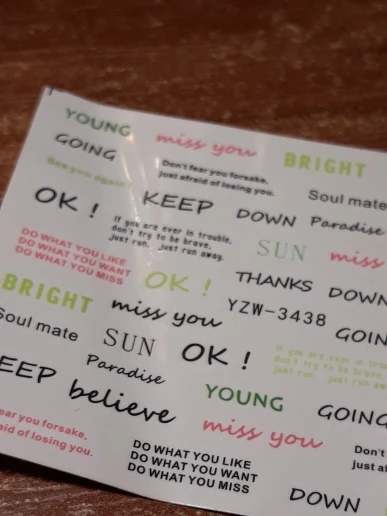 YOUNG
miss you
BRIGHT
GOING
Don't fear you forsake,
just afraid of losing you.
See you again!
Soul mate
OK !
KEEP
DOWN
Paradise
If you are ever in trouble,
don't try to be brave,
just run, just run away.
SUN
miss
DO WHAT YOU LIKE
DO WHAT YOU WANT
DO WHAT YOU MISS
OK !
THANKS
DOWN
BRIGHT
miss you
YZW-3438
GOIN
Soul mate
SUN
OK !
If you are ever in trou
don't try to be brave,
just run, just run aw
Paradise
EEP
believe
YOUNG
GOING
ear you forsake,
aid of losing you.
miss you
DO WHAT YOU LIKE
DO WHAT YOU WANT
DO WHAT YOU MISS
Don't
just af
DOWN